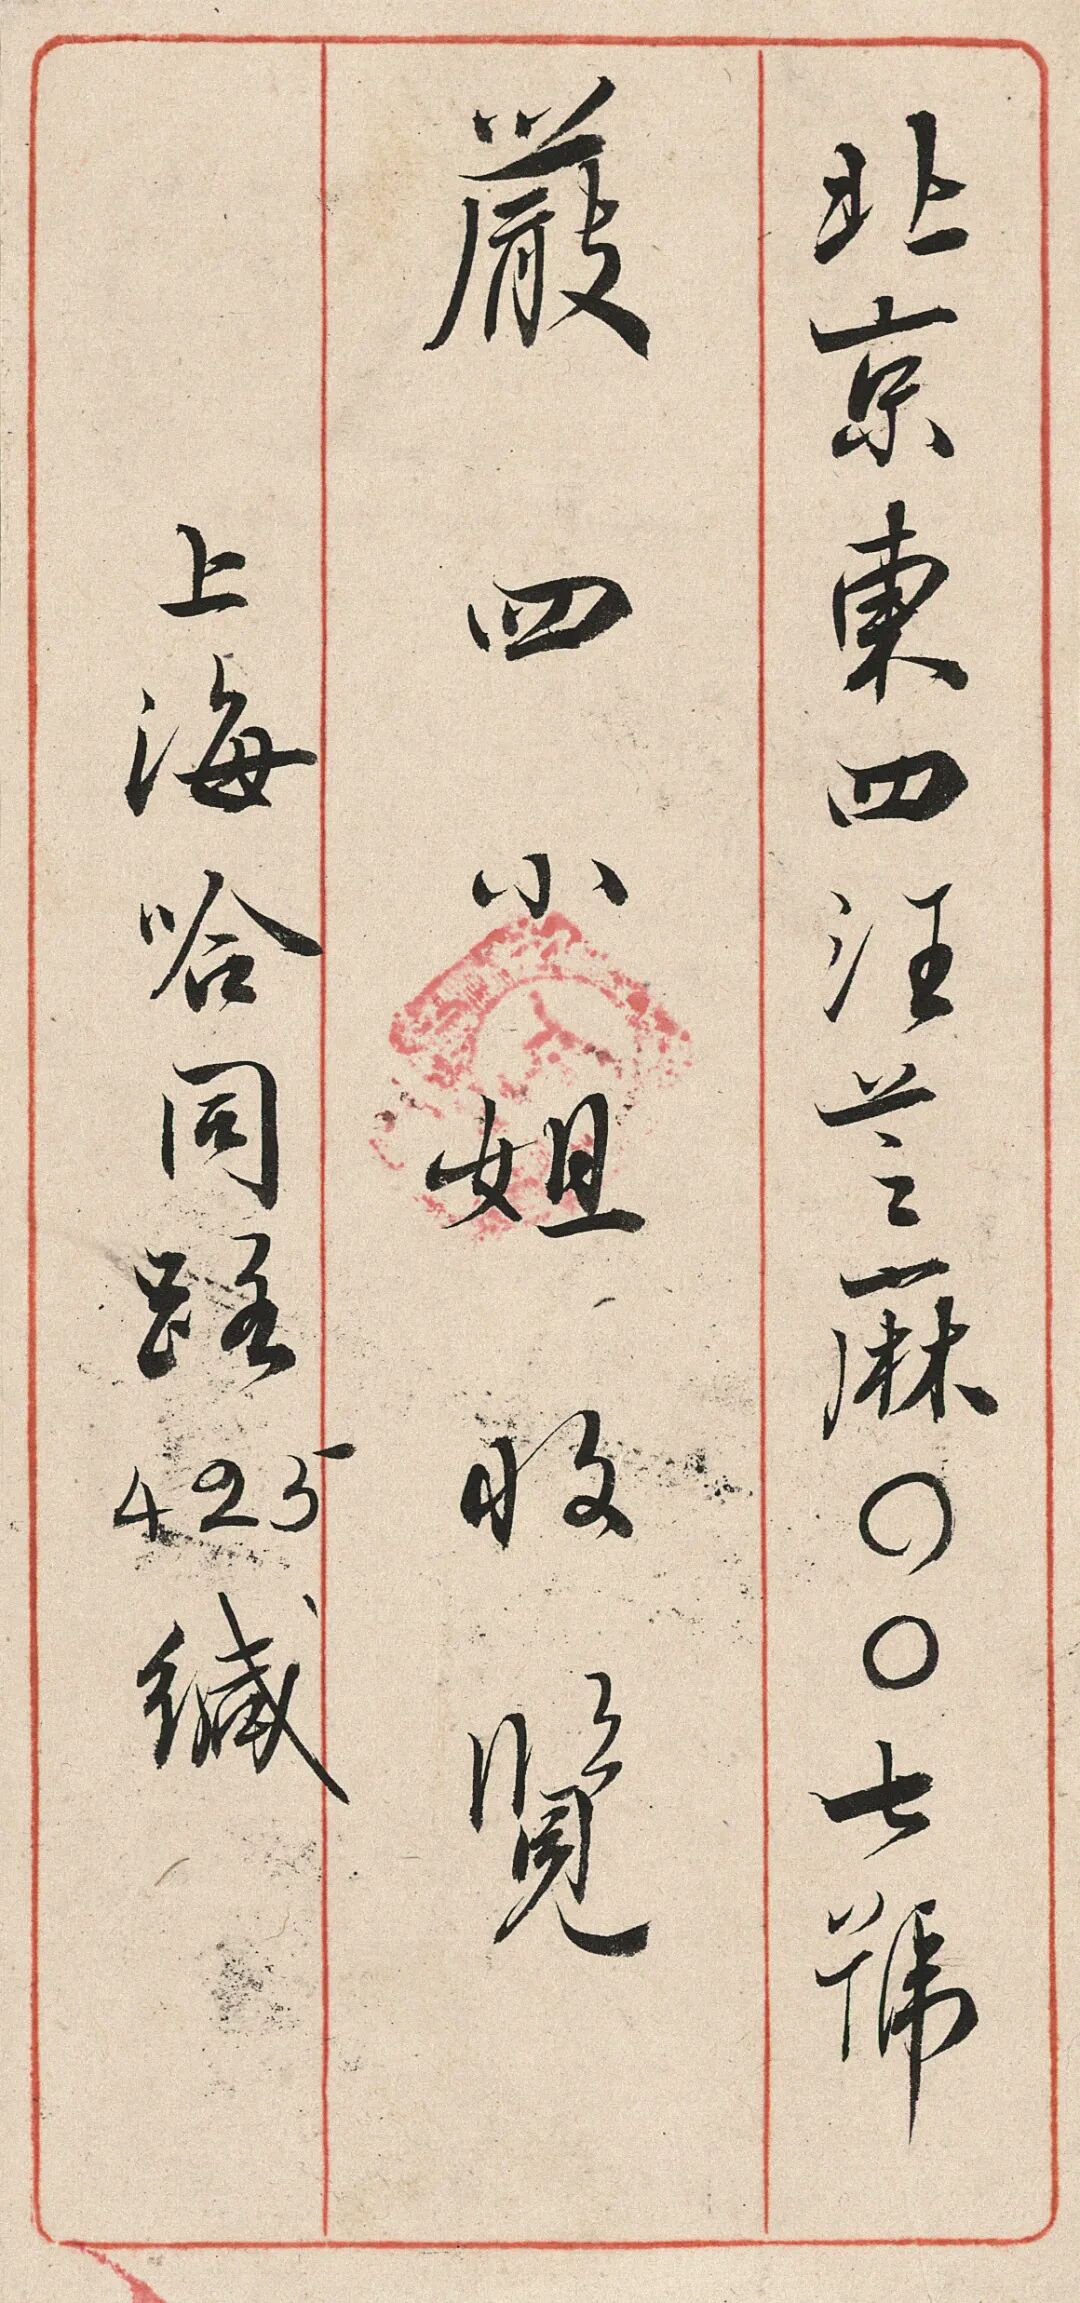 北京東四汪芝麻〇〇七號
嚴四小姐收覽
上海哈同路425緘